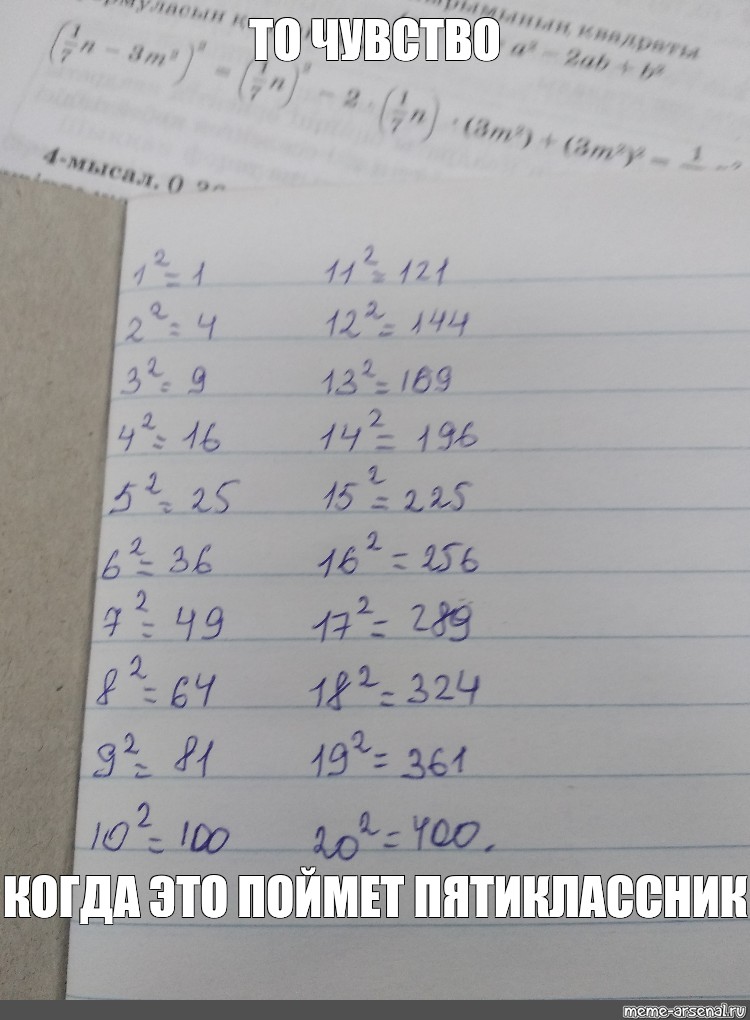 ТО ЧУВСТВО
квадраты
a² − 2ab + b²
(1/7 n − 3m²)² = (1/7 n)² − 2 · (1/7 n) · (3m²) + (3m²)² =
4-мысал.
1² = 1
2² = 4
3² = 9
4² = 16
5² = 25
6² = 36
7² = 49
8² = 64
9² = 81
10² = 100
11² = 121
12² = 144
13² = 169
14² = 196
15² = 225
16² = 256
17² = 289
18² = 324
19² = 361
20² = 400.
КОГДА ЭТО ПОЙМЕТ ПЯТИКЛАССНИК
meme-arsenal.ru